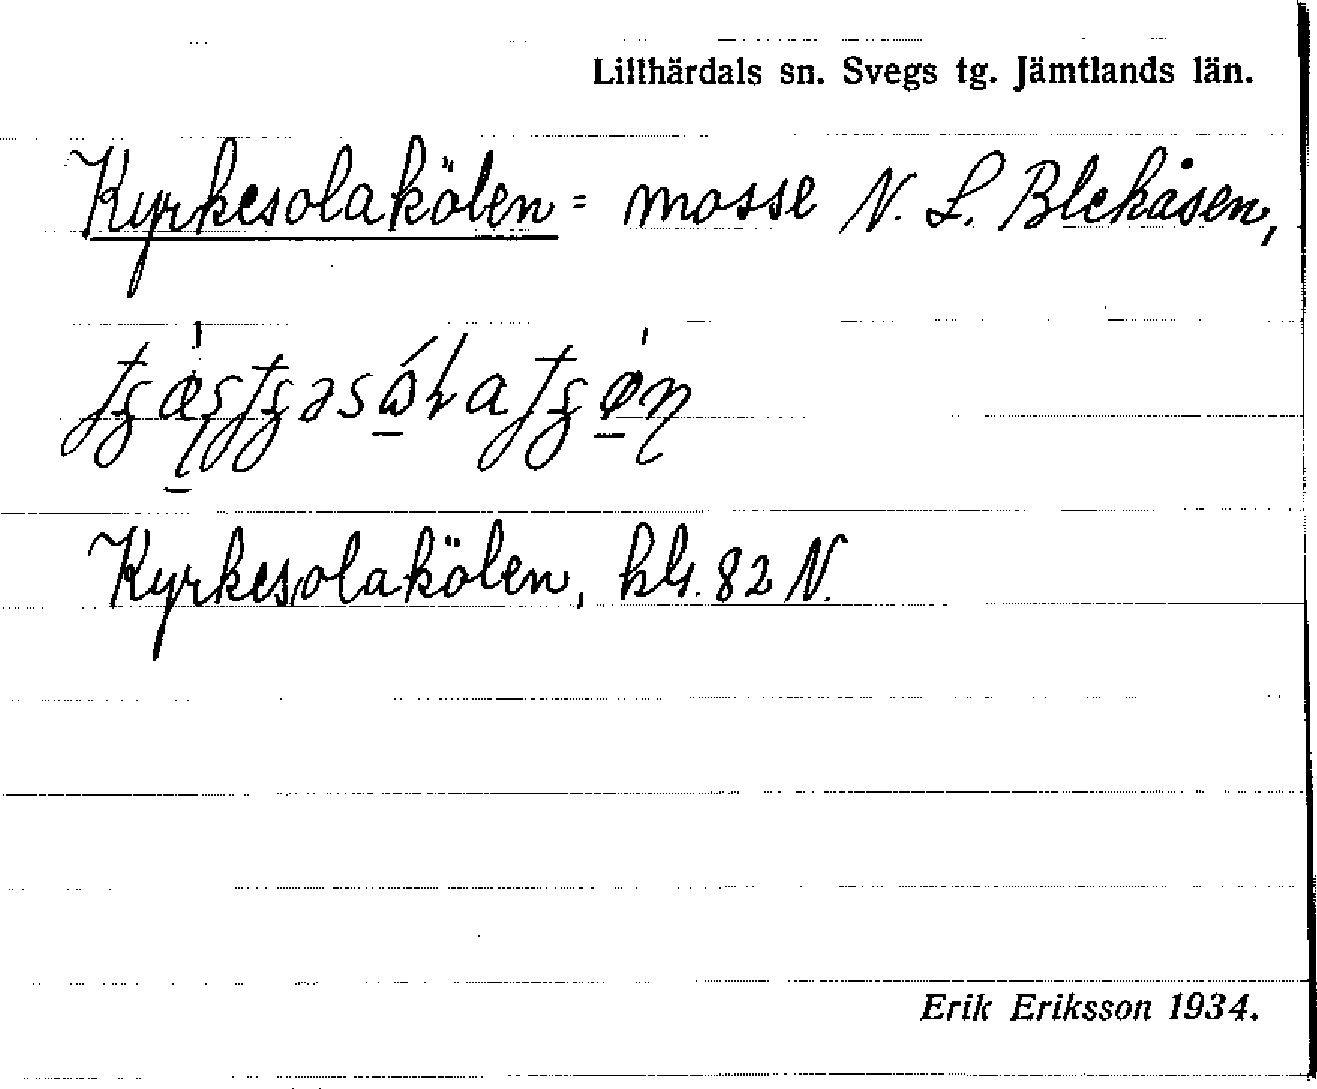 Lillhärdals sn. Svegs tg. Jämtlands län.
Kyrkesolakölen = mosse N. L. Blekåsen,
Kyrkesolakölen, hls. 82 N.
Erik Eriksson 1934.